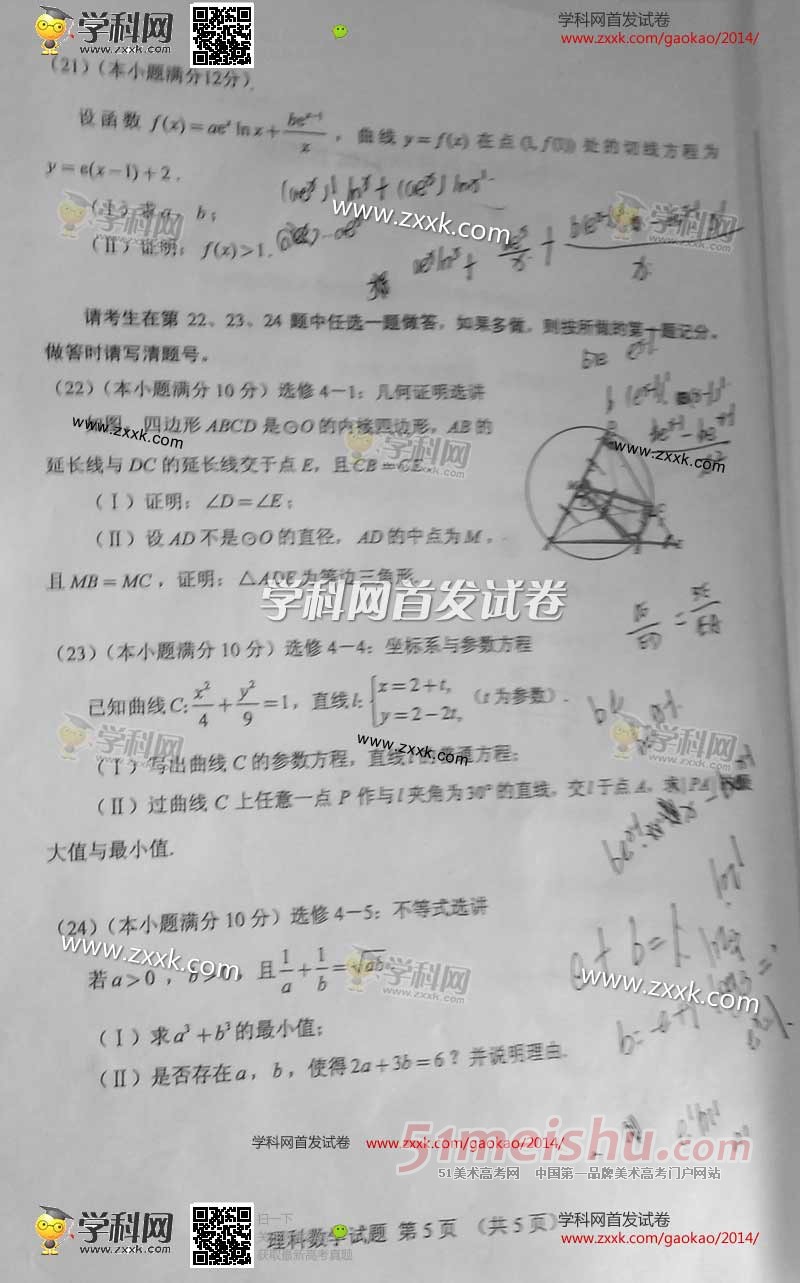 学科网
www.zxxk.com
学科网首发试卷
www.zxxk.com/gaokao/2014/
(21)（本小题满分12分）
设函数 f(x)=ae^x ln x+be^{x-1}/x，曲线 y=f(x) 在点(1, f(1))处的切线方程为
y=e(x-1)+2.
(Ⅰ) 求a，b；
(Ⅱ) 证明：f(x)>1.
www.zxxk.com
学科网
www.zxxk.com
学科网
www.zxxk.com
请考生在第 22、23、24 题中任选一题做答，如果多做，则按所做的第一题记分。
做答时请写清题号。
(22)（本小题满分 10 分）选修 4－1：几何证明选讲
如图，四边形 ABCD 是⊙O 的内接四边形，AB 的
www.zxxk.com
学科网
www.zxxk.com
www.zxxk.com
延长线与 DC 的延长线交于点 E，且CB=CE.
(Ⅰ) 证明：∠D=∠E；
(Ⅱ) 设 AD 不是⊙O 的直径，AD 的中点为 M，
且 MB=MC，证明：△ADE为等边三角形.
学科网首发试卷
(23)（本小题满分 10 分）选修 4－4：坐标系与参数方程
已知曲线C: x²/4+y²/9=1，直线l: {x=2+t, y=2-2t,（t 为参数）.
学科网
www.zxxk.com
www.zxxk.com
学科网
www.zxxk.com
(Ⅰ) 写出曲线 C 的参数方程，直线 l 的普通方程；
(Ⅱ) 过曲线 C 上任意一点 P 作与 l 夹角为30°的直线，交l于点 A，求|PA|的最
大值与最小值.
(24)（本小题满分 10 分）选修 4－5：不等式选讲
www.zxxk.com
若 a>0，b>0，且 1/a+1/b=√ab.
学科网
www.zxxk.com
a+b=1
www.zxxk.com
(Ⅰ) 求 a³+b³ 的最小值；
(Ⅱ) 是否存在 a，b，使得2a+3b=6？并说明理由.
学科网首发试卷 www.zxxk.com/gaokao/2014/
51meishu.com
51美术高考网 中国第一品牌美术高考门户网站
学科网
www.zxxk.com
扫一下
获取最新高考真题
理科数学试题 第5页 （共5页）
学科网首发试卷
www.zxxk.com/gaokao/2014/